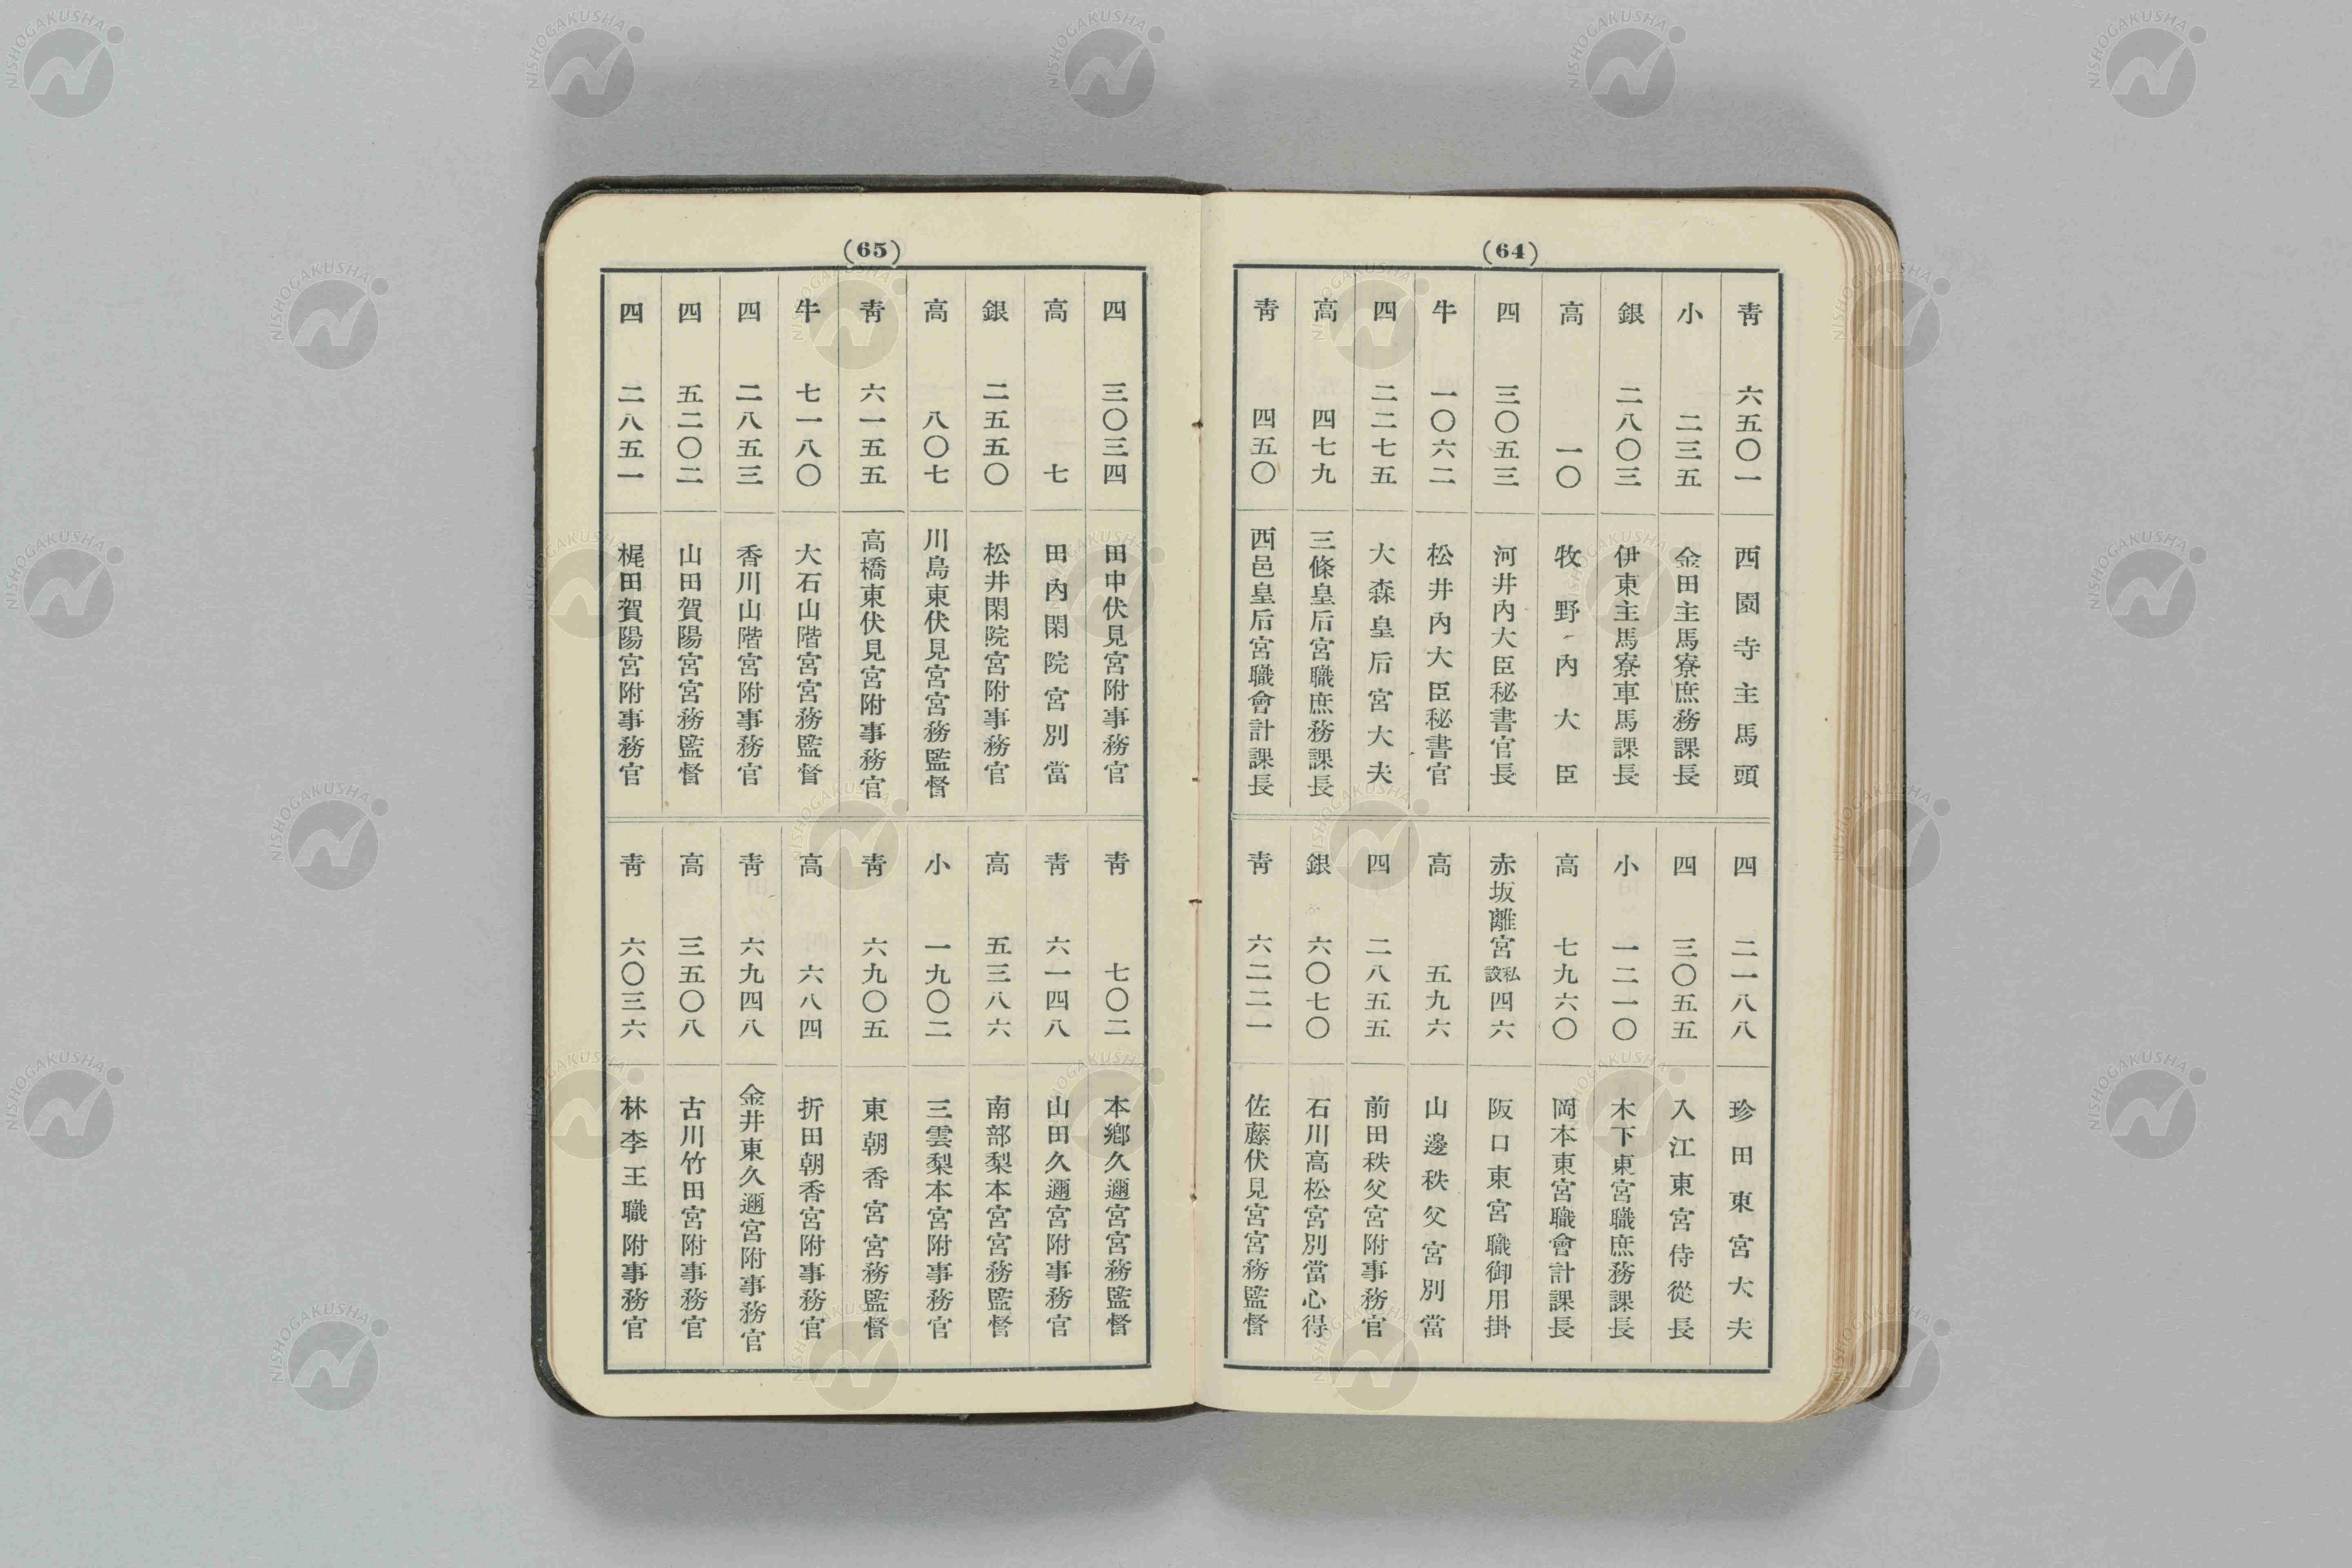 (64)
靑 六五〇一 西園寺主馬頭
小 二三五 金田主馬寮庶務課長
銀 二八〇三 伊東主馬寮車馬課長
高 一〇 牧野內大臣
四 三〇五三 河井內大臣秘書官長
牛 一〇六二 松井內大臣秘書官
四 二二七五 大森皇后宮大夫
高 四七九 三條皇后宮職庶務課長
靑 四五〇 西邑皇后宮職會計課長
四 二一八八 珍田東宮大夫
四 三〇五五 入江東宮侍從長
小 一二一〇 木下東宮職庶務課長
高 七九六〇 岡本東宮職會計課長
赤坂離宮私設四六 阪口東宮職御用掛
高 五九六 山邊秩父宮別當
四 二八五五 前田秩父宮附事務官
銀 六〇七〇 石川高松宮別當心得
靑 六二二一 佐藤伏見宮宮務監督
(65)
四 三〇三四 田中伏見宮附事務官
高 七 田內閑院宮別當
銀 二五五〇 松井閑院宮附事務官
高 八〇七 川島東伏見宮宮務監督
靑 六一五五 高橋東伏見宮附事務官
牛 七一八〇 大石山階宮宮務監督
四 二八五三 香川山階宮附事務官
四 五二〇二 山田賀陽宮宮務監督
四 二八五一 梶田賀陽宮附事務官
靑 七〇二 本鄕久邇宮宮務監督
靑 六一四八 山田久邇宮附事務官
高 五三八六 南部梨本宮宮務監督
小 一九〇二 三雲梨本宮附事務官
靑 六九〇五 東朝香宮宮務監督
高 六八四 折田朝香宮附事務官
靑 六九四八 金井東久邇宮附事務官
高 三五〇八 古川竹田宮附事務官
靑 六〇三六 林李王職附事務官
NISHOGAKUSHA